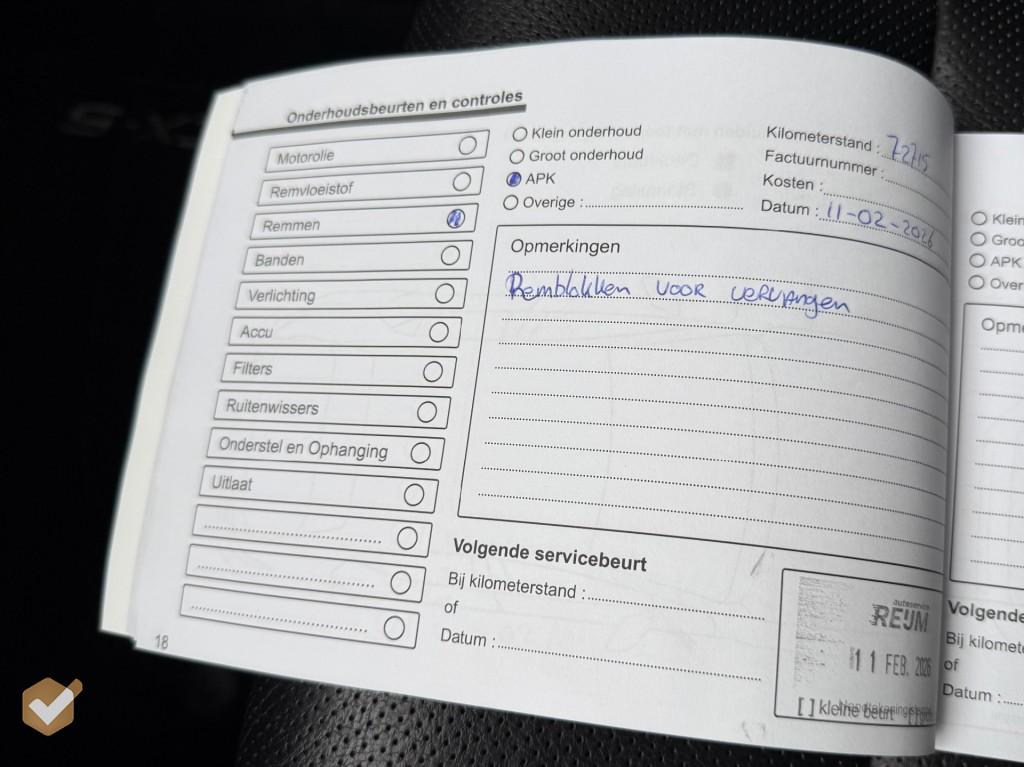 Onderhoudsbeurten en controles
Motorolie
Remvloeistof
Remmen
Banden
Verlichting
Accu
Filters
Ruitenwissers
Onderstel en Ophanging
Uitlaat
18
Klein onderhoud
Groot onderhoud
APK
Overige :
Kilometerstand : 72715
Factuurnummer :
Kosten :
Datum : 11-02-2026
Opmerkingen
Remblokken voor vervangen
Volgende servicebeurt
Bij kilometerstand :
of
Datum :
autoservice
REIJM
11 FEB. 2026
[ ] kleine beurt
Klein
Groo
APK
Over
Opme
Volgende
Bij kilomete
of
Datum :